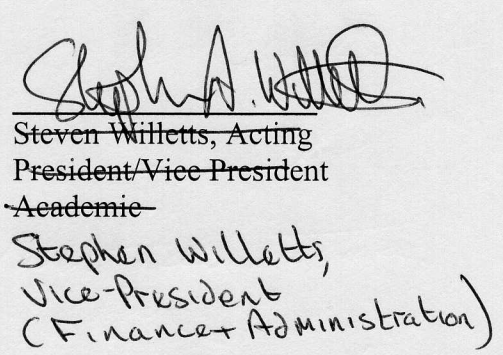 Stephen A. Willetts
Steven Willetts, Acting
President/Vice President
Academic
Stephen Willetts,
Vice-President
(Finance + Administration)